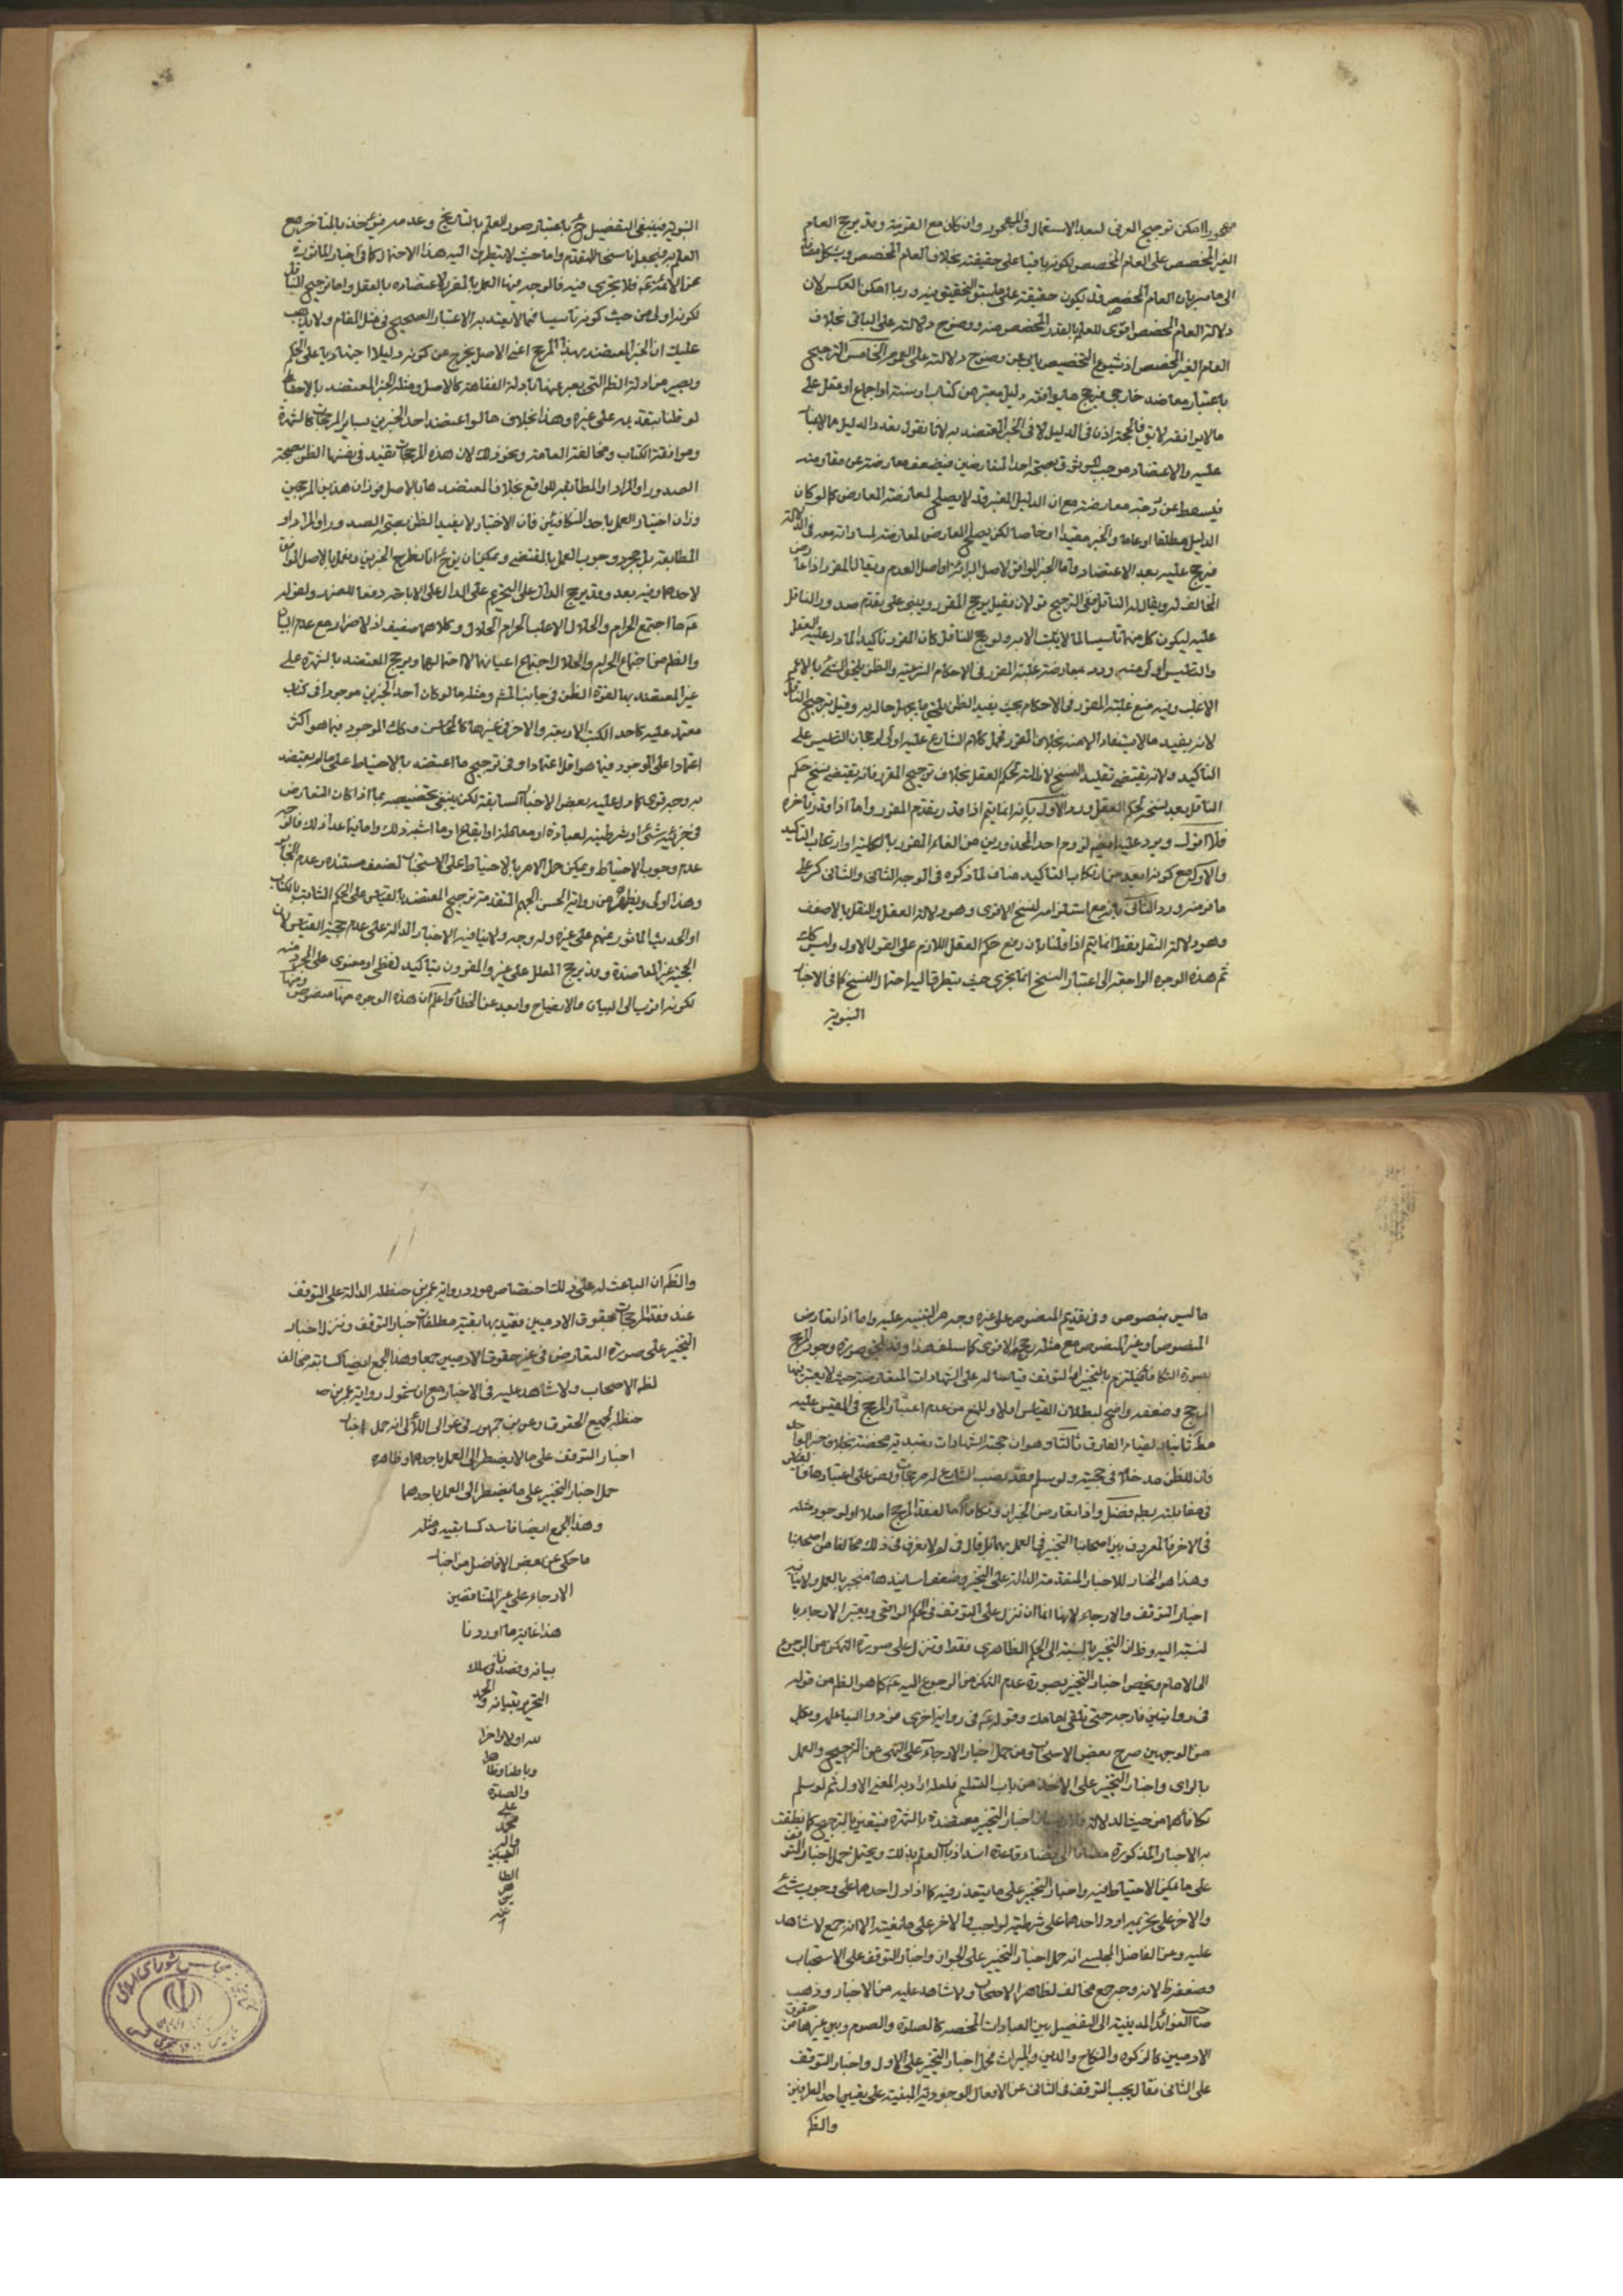 مهجورا امكن توجيح العرفى لبعد الاستعمال فى المهجور وان كان مع القرينة وقد يرجح العام
الغير المخصص على العام المخصص لكونه باقيا على حقيقته بخلاف العام المخصص ويشكل مضافا
الى ما مر بان العام المخصص قد يكون حقيقة على ما سبق التحقيق فيه وربما امكن العكس لان
دلالة العام المخصص اقوى للعلم بالقدر المخصص منه ووضوح دلالته على الباقى بخلاف
العام الغير المخصص اذ شيوع التخصيص يابى عن وضوح دلالته على العموم الخامس الترجيح
باعتبار معاضد خارجى فيرجح ما يوافقه دليل معتبر من كتاب او سنة او اجماع او عقل على
ما لا يوافقه لا يق فالحجة اذن فى الدليل لا فى الخبر المعتضد به لانا نقول تعدد الدليل مما لا
عليه والاعتضاد موجب للوثوق بصحة احد المتعارضين فيضعف معارضته عن مقاومته
فيسقط عن درجة معارضته مع ان الدليل المعتبر قد لا يصلح لمعارضة المعارض كما لو كان
الدليل مطلقا او عاما والخبر مقيدا او خاصا لكن يصلح المعارض لمعارضته لمساواته معه فى الدلالة
فيرجح عليه بعد الاعتضاد واما الخبر الموافق لاصل البرائة او اصل العدم ويقال له المقرر اذا عارضه
المخالف له ويقال له الناقل ففى الترجيح قولان فقيل يرجح المقرر ويبنى على تقدم صدور الناقل
عليه ليكون كل منهما تاسيسا لما لا يثبت الا به ولو رجح الناقل كان المقرر تأكيدا لما دل عليه العقل
والتاسيس اولى منه ورد بمعارضة غلبة المقرر فى الاحكام الشرعية والظن يلحق الشئ بالاعم
الاغلب وفيه منع غلبة المقرر فى الاحكام بحيث يفيد الظن بلحوق ما يجهل حاله به وقيل بترجيح الناقل
لانه يفيد ما لا يستفاد الا منه بخلاف المقرر فحمل كلام الشارع عليه اولى لرجحان التاسيس على
التاكيد ولانه يقتضى تقليل النسخ لازالته حكم العقل بخلاف ترجيح المقرر فانه يقتضى نسخ حكم
الناقل بعد نسخه لحكم العقل ورد الاول بانه انما يتم اذا قدر تقدم المقرر واما اذا قدر تاخره
فلا اقول ويرد عليه ايضا لزوم احد المحذورين من الغاء المقرر بالكلية او ارتكاب التاكيد
والاول مع كونه ابعد من ارتكاب التاكيد مناف لما ذكروه فى الوجه الثانى والثانى كر على
ما فر منه ورد الثانى بانه مع استلزامه لنسخ الاقوى وهو دلالة العقل والنقل بالاضعف
وهو دلالة النقل فقط انما يتم اذا قلنا بان رفع حكم العقل اللازم على القول الاول وليس كك
ثم هذه الوجوه الراجعة الى اعتبار النسخ انما تجرى حيث يتطرق اليه احتمال النسخ كما فى الاخبار
النبوية
النبوية فينبغى التفصيل ح باعتبار صور العلم بالتاريخ وعدمه فيؤخذ بالمتاخر مع
العلم به فيجعل ناسخا للمتقدم واما حيث لا يتطرق اليه هذا الاحتمال كما فى اخبار الماثورة
عن الائمة ع فلا يجرى فيه فالوجه فيها العمل بالمقرر لاعتضاده بالعقل واما ترجيح الناقل
لكونه اولى من حيث كونه تاسيسا فمما لا يعتد به الاعتبار الصحيح فى مثل المقام ولا يذهب
عليك ان الخبر المعتضد بهذا المرجح اعنى الاصل يخرج عن كونه دليلا اجتهاديا على الحكم
ويصير من ادلة الظم التى يعبر عنها بادلة الفقاهة كالاصل ومثله الخبر المعتضد بالاحتياط
لو قلنا بتقديمه على غيره وهذا بخلاف ما لو اعتضد احد الخبرين بساير المرجحات كالشهرة
وموافقة الكتاب ومخالفة العامة ونحو ذلك لان هذه المرجحات تفيد فى نفسها الظن بصحة
الصدور او المراد او المطابقة للواقع بخلاف المعتضد هنا بالاصل فوزان هذين المرجحين
وزان اختيار العمل باحد المتكافئين فان الاختيار لا يفيد الظن بصحة الصدور او المراد او
المطابقة بل مجرد وجوب العمل بالمقتضى ويمكن ان يق ح انا نطرح الخبرين ونعمل بالاصل الموافق
لاحدهما وفيه بعد وقد يرجح الدال على التحريم على الدال على الاباحة دفعا للضرر ولقوله
ع ما اجتمع الحرام والحلال الا غلب الحرام الحلال وكلاهما ضعيف اذ لا ضرار مع عدم البيان
والظم من اجتماع الحرام والحلال اجتماع اعيانهما لا احتمالهما ويرجح المعتضد بالشهرة على
غير المعتضد بها لقوة الظن فى جانب المشهور ومثله ما لو كان احد الخبرين موجودا فى كتاب
معتمد عليه كاحد الكتب الاربعة والاخر فى غيرها كالمحاسن وكك الموجود فيما هو اكثر
اعتمادا على الموجود فيما هو اقل اعتمادا وفى ترجيح ما اعتضد بالاحتياط على ما لم يعتضد
به وجه قوى كما دل عليه بعض الاخبار السابقة لكن ينبغى تخصيصه بما اذا كان التعارض
فى جزئية شئ او شرطيته لعبادة او معاملة او ايقاع او ما اشبه ذلك واما فيما عدا ذلك فالوجه
عدم وجوب الاحتياط ويمكن حمل الامر بالاحتياط على الاستحباب لضعف مستنده وعدم الجابر
وهذا اولى ويظهر من رواية الحسن الجهم المتقدمة ترجيح المعتضد بالقياس على الحكم الثابت بالكتاب
او الحديث الماثور عنهم على غيره وله وجه ولا ينافيه الاخبار الدالة على عدم حجية القياس لان
الحجية غير المعاضدة وقد يرجح المعلل على غيره والمقرون بتاكيد لفظى او معنوى على المجرد منه
لكونه اقرب الى البيان والايضاح وابعد عن الخطأ واعلم ان هذه الوجوه منها منصوص ومنها
ما ليس بمنصوص وفى تقديم المنصوص على غيره وجه مر التنبيه عليه واما اذا تعارض
المنصوص او غير المنصوص مع مثله رجح الاقوى كما سلف هذا وقد يلحق صورة وجود المرجح
بصورة التكافؤ فيلتزم بالتخيير او التوقف قياسا له على الشهادات المتعارضة حيث لا يعتبر فيها
المرجح وضعفه واضح لبطلان القياس اولا وللمنع من عدم اعتبار المرجح فى المقيس عليه
مط ثانيا ولقيام الفارق ثالثا وهو ان حجية الشهادات تعبدية محضة بخلاف خبر الواحد
فان للظن مدخلا فى حجيته ولو سلم فقد نصب الشارع له مرجحات ونص على اعتبارها فالقياس
فى مقابلته يطم فضل واذا تعارض الخبران وتكافأ اما لفقد المرجح اصلا او لوجود مثله
فى الاخر فالمعروف بين اصحابنا التخيير فى العمل بهما بل قال فى لم لا نعرف فى ذلك مخالفا من اصحابنا
وهذا هو المختار للاخبار المتقدمة الدالة على التخيير وضعف اسانيدها منجبر بالعمل ولا ينافيه
اخبار التوقف والارجاء لانها اما ان تنزل على التوقف فى الحكم الواقعى ويعتبر الارجاء با
لنسبة اليه وظان التخيير بالنسبة الى الحكم الظاهرى فقط او تنزل على صورة التمكن من الرجوع
الى الامام ويخص اخبار التخيير بصورة عدم التمكن من الرجوع اليه ع كما هو الظم من قوله
فى روايتين فارجه حتى تلقى امامك وقوله ع فى رواية اخرى من ردوا الينا علمه وبكل
من الوجهين صرح بعض الاصحاب ومن حمل اخبار الارجاء على النهى عن الترجيح والعمل
بالراى واخبار التخيير على الاخذ من باب التسليم فلعله اراد به المعنى الاول ثم لو سلم
تكافأهما من حيث الدلالة فلا ريب ان اخبار التخيير معتضدة بالشهرة فيتعين بالترجيح كما نطقت
به الاخبار المذكورة مضافا الى قضاء قاعدة انسداد باب العلم بذلك ويحتمل حمل اخبار التوقف
على ما يمكن الاحتياط فيه واخبار التخيير على ما يتعذر فيه كما اذا دل احدهما على وجوب شئ
والاخر على تحريمه او دل احدهما على شرطيته لواجب والاخر على مانعيته الا انه جمع لا شاهد
عليه وعن الفاضل المجلسى انه حمل اخبار التخيير على الجواز واخبار التوقف على الاستحباب
وضعفه ظ لانه وجه جمع مخالف لظاهر الاصحاب ولا شاهد عليه من الاخبار وذهب
صاحب الفوائد المدينية الى التفصيل بين العبادات المحضة كالصلوة والصوم وبين غيرها من حقوق
الادميين كالزكوة والنكاح والدين والميراث فحمل اخبار التخيير على الاول واخبار التوقف
على الثانى فقال يجب التوقف فى الثانى عن الافعال الوجودية المبنية على تعيين احد الطرفين
والظم
والظم ان الباعث له على ذلك اختصاص مورد رواية عمر بن حنظله الدالة على التوقف
عند فقد المرجحات بحقوق الادميين فقيد بها بقية مطلقات اخبار التوقف ونزل اخبار
التخيير على صورة التعارض فى غير حقوق الادميين جمعا وهذا الجمع ايضا كسابقه مخالف
لظم الاصحاب ولا شاهد عليه فى الاخبار مع ان شمول رواية عمر بن
حنظله لجميع الحقوق وعن بن جمهور فى غوالى اللآلى انه حمل اخبار
اخبار التوقف على ما لا يضطر الى العمل باحدهما وظاهره
حمل اخبار التخيير على ما يضطر الى العمل باحدهما
وهذا الجمع ايضا فاسد كسابقيه ومثله
ما حكى عن بعض الافاضل من اخبار
الارجاء على غير المتناقضين
هذا غاية ما اوردنا
بيانه وقصدنا فى سلك
التحرير تبيانه والحمد
لله اولا واخرا
وباطنا وظاهرا
والصلوة
على
محمد
واله
الطيبين
الطا
هر
ين